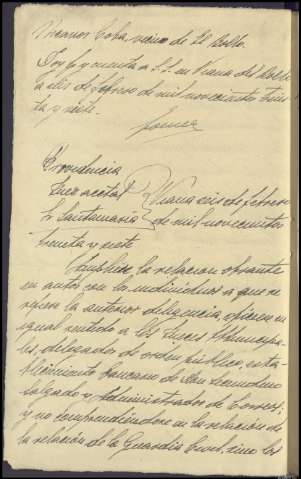 Vicanor Coba, vecino de El Bollo.
Doy fe y cuenta a S.S. en Viana del Bollo
a seis de febrero de mil novecientos trein
ta y siete.
Gomez
Providencia
Juez acctal
Sr Santamaria
Viana seis de febrero
de mil novecientos
treinta y siete
Amplíese la relación obrante
en autos con los individuos a que se
refiere la anterior diligencia, oficiese en
igual sentido a los Jueces Municipa-
les, delegados de orden público, esta-
blecimiento bancario de Don
Salgado y Administrador de Correos;
y no comprendiendose en la relación de
la relación de la Guardia Civil, sino los